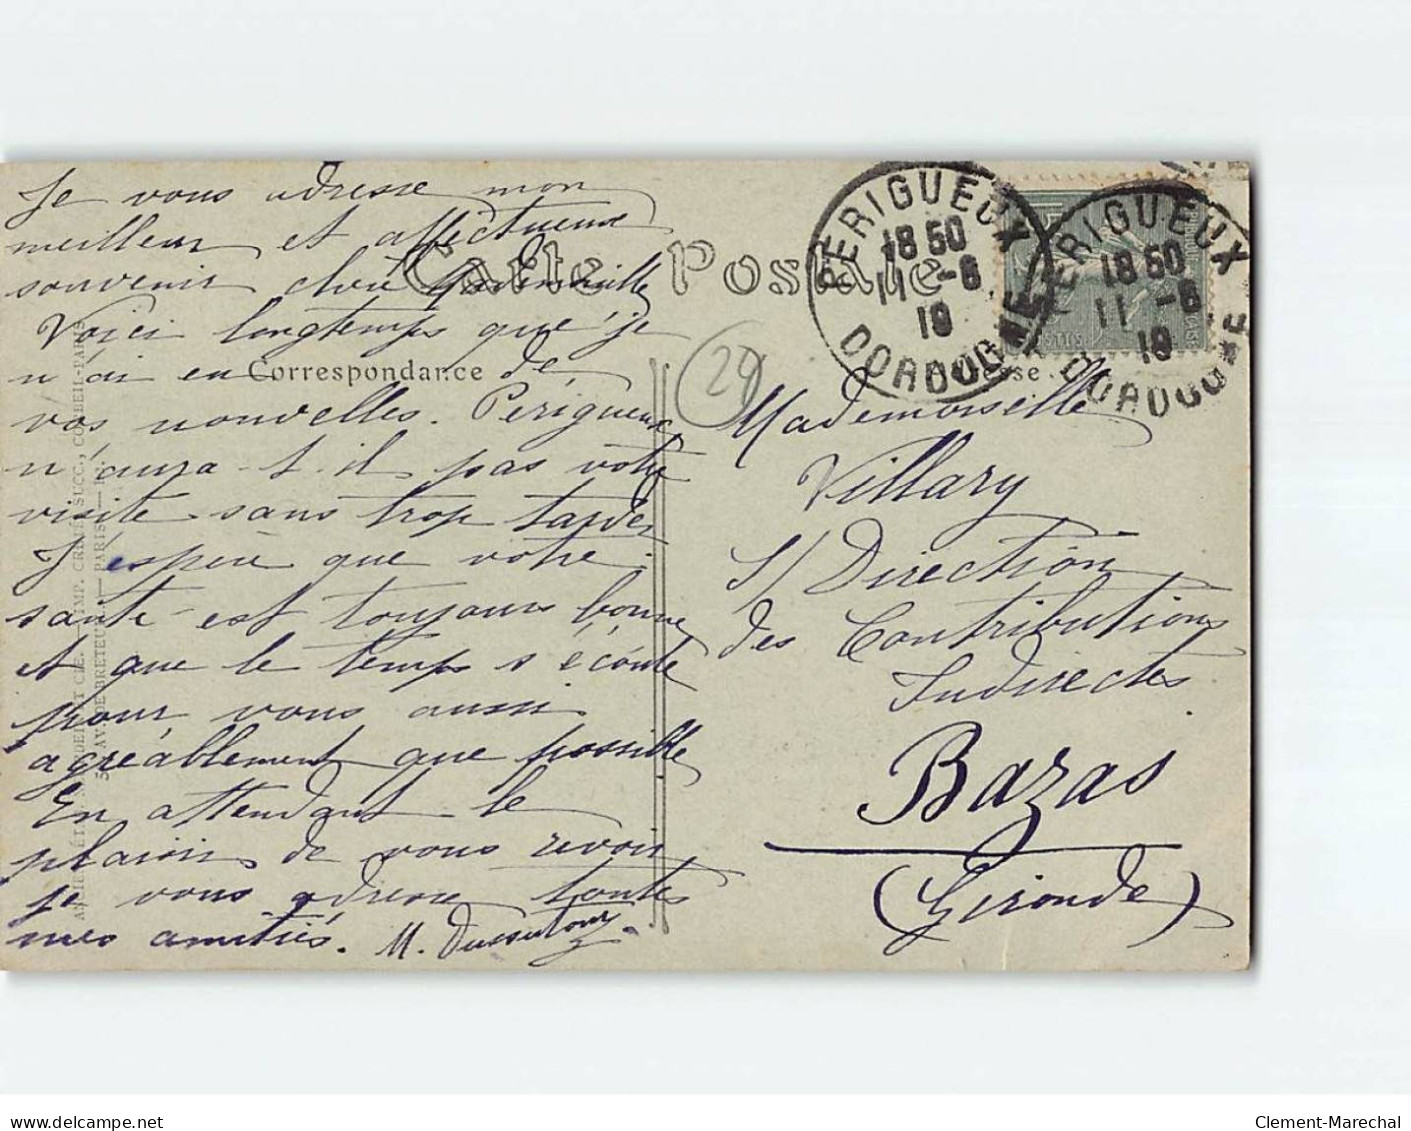 Je vous adresse mon
meilleur et affectueux
souvenir chère
Voici longtemps que je
n'ai eu de
vos nouvelles. Périgueux
n'aura-t-il pas votre
visite sans trop tarder
J'espère que votre
santé est toujours bonne
et que le temps s'écoule
pour vous aussi
agréablement que possible
En attendant le
plaisir de vous revoir
je vous adresse toutes
mes amitiés. M. Dussutour
Carte Postale
Correspondance
29
PERIGUEUX
18 50
11 -6
19
DORDOGNE
PERIGUEUX
18 50
11 -6
19
DORDOGNE
Mademoiselle
Villary
S/ Direction
des Contributions
Indirectes
Bazas
(Gironde)
www.delcampe.net
Clement-Marechal